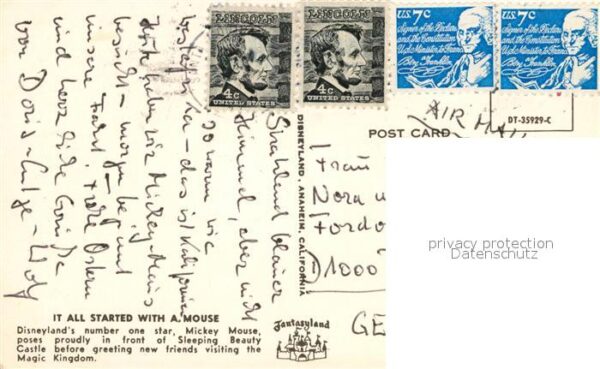 LINCOLN
4c
UNITED STATES
LINCOLN
4c
UNITED STATES
U.S. 7c
Signer of the Declaration
and the Constitution
U.S. Minister to France
Benj. Franklin
U.S. 7c
Signer of the Declaration
and the Constitution
U.S. Minister to France
Benj. Franklin
DT-35929-C
AIR MAIL
POST CARD
DISNEYLAND, ANAHEIM, CALIFORNIA
Strahlend blauer
Himmel, aber nicht
so warm wie
- das ist Kalifornien
Heute haben wir Mickey-Maus
besucht - morgen beginnt
unsere Fahrt. Frohe Ostern
und herzliche Grüße
von Doris
Frau
Nora
D 1000
GE
privacy protection
Datenschutz
IT ALL STARTED WITH A MOUSE
Disneyland's number one star, Mickey Mouse,
poses proudly in front of Sleeping Beauty
Castle before greeting new friends visiting the
Magic Kingdom.
Fantasyland